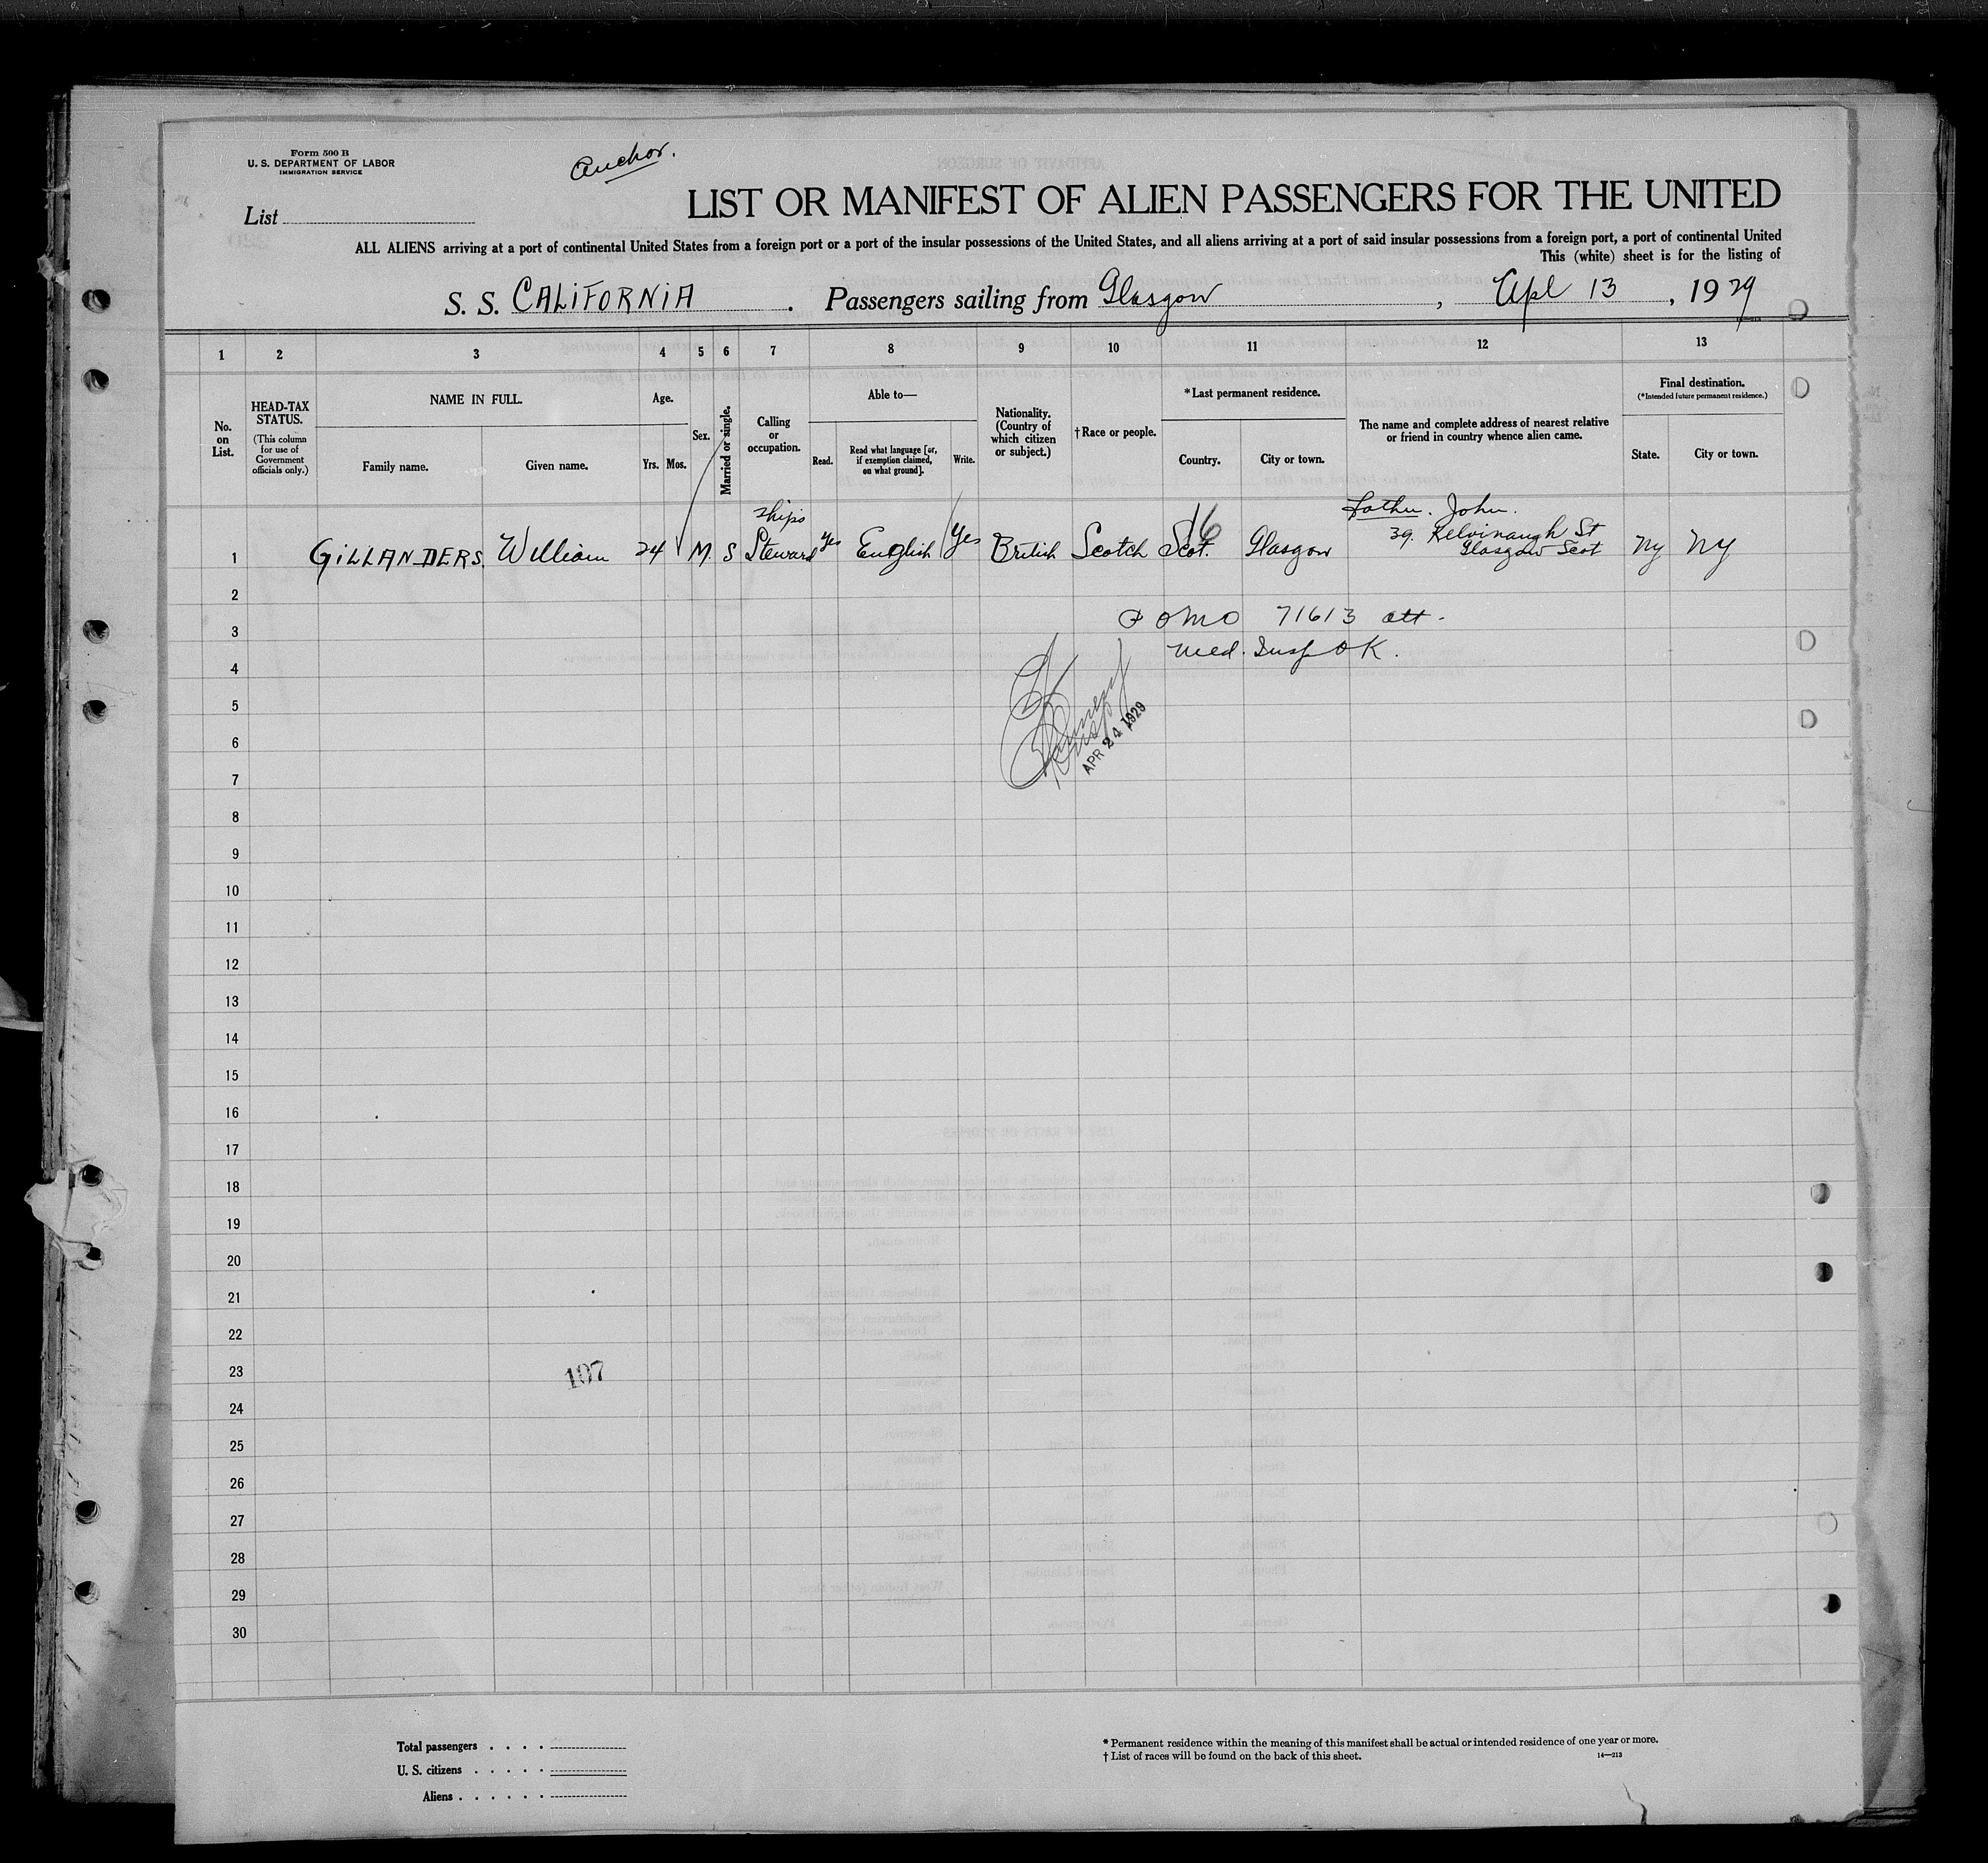 Form 500 B
U. S. DEPARTMENT OF LABOR
IMMIGRATION SERVICE
Anchor.
List
LIST OR MANIFEST OF ALIEN PASSENGERS FOR THE UNITED
ALL ALIENS arriving at a port of continental United States from a foreign port or a port of the insular possessions of the United States, and all aliens arriving at a port of said insular possessions from a foreign port, a port of continental United
This (white) sheet is for the listing of
S. S. CALIFORNIA. Passengers sailing from Glasgow, Apl 13, 1929
1 2 3 4 5 6 7 8 9 10 11 12 13
No. on List.
HEAD-TAX STATUS.
(This column for use of Government officials only.)
NAME IN FULL.
Family name. Given name.
Age.
Yrs. Mos.
Sex.
Married or single.
Calling or occupation.
Able to—
Read. Read what language [or, if exemption claimed, on what ground]. Write.
Nationality. (Country of which citizen or subject.)
†Race or people.
*Last permanent residence.
Country. City or town.
The name and complete address of nearest relative or friend in country whence alien came.
Final destination.
(*Intended future permanent residence.)
State. City or town.
1 GILLANDERS. William 24 M. S Ships Steward yes English yes British Scotch Scot. 16 Glasgow Father. John.
39. Kelvinaugh St
Glasgow Scot NY NY
2
3 71613 att.
4 Med. Insp OK.
5
6 APR 24 1929
7
8
9
10
11
12
13
14
15
16
17
18
19
20
21
22
23 107
24
25
26
27
28
29
30
Total passengers . . . .
U. S. citizens . . . . .
Aliens . . . . . .
* Permanent residence within the meaning of this manifest shall be actual or intended residence of one year or more.
† List of races will be found on the back of this sheet. 14—213